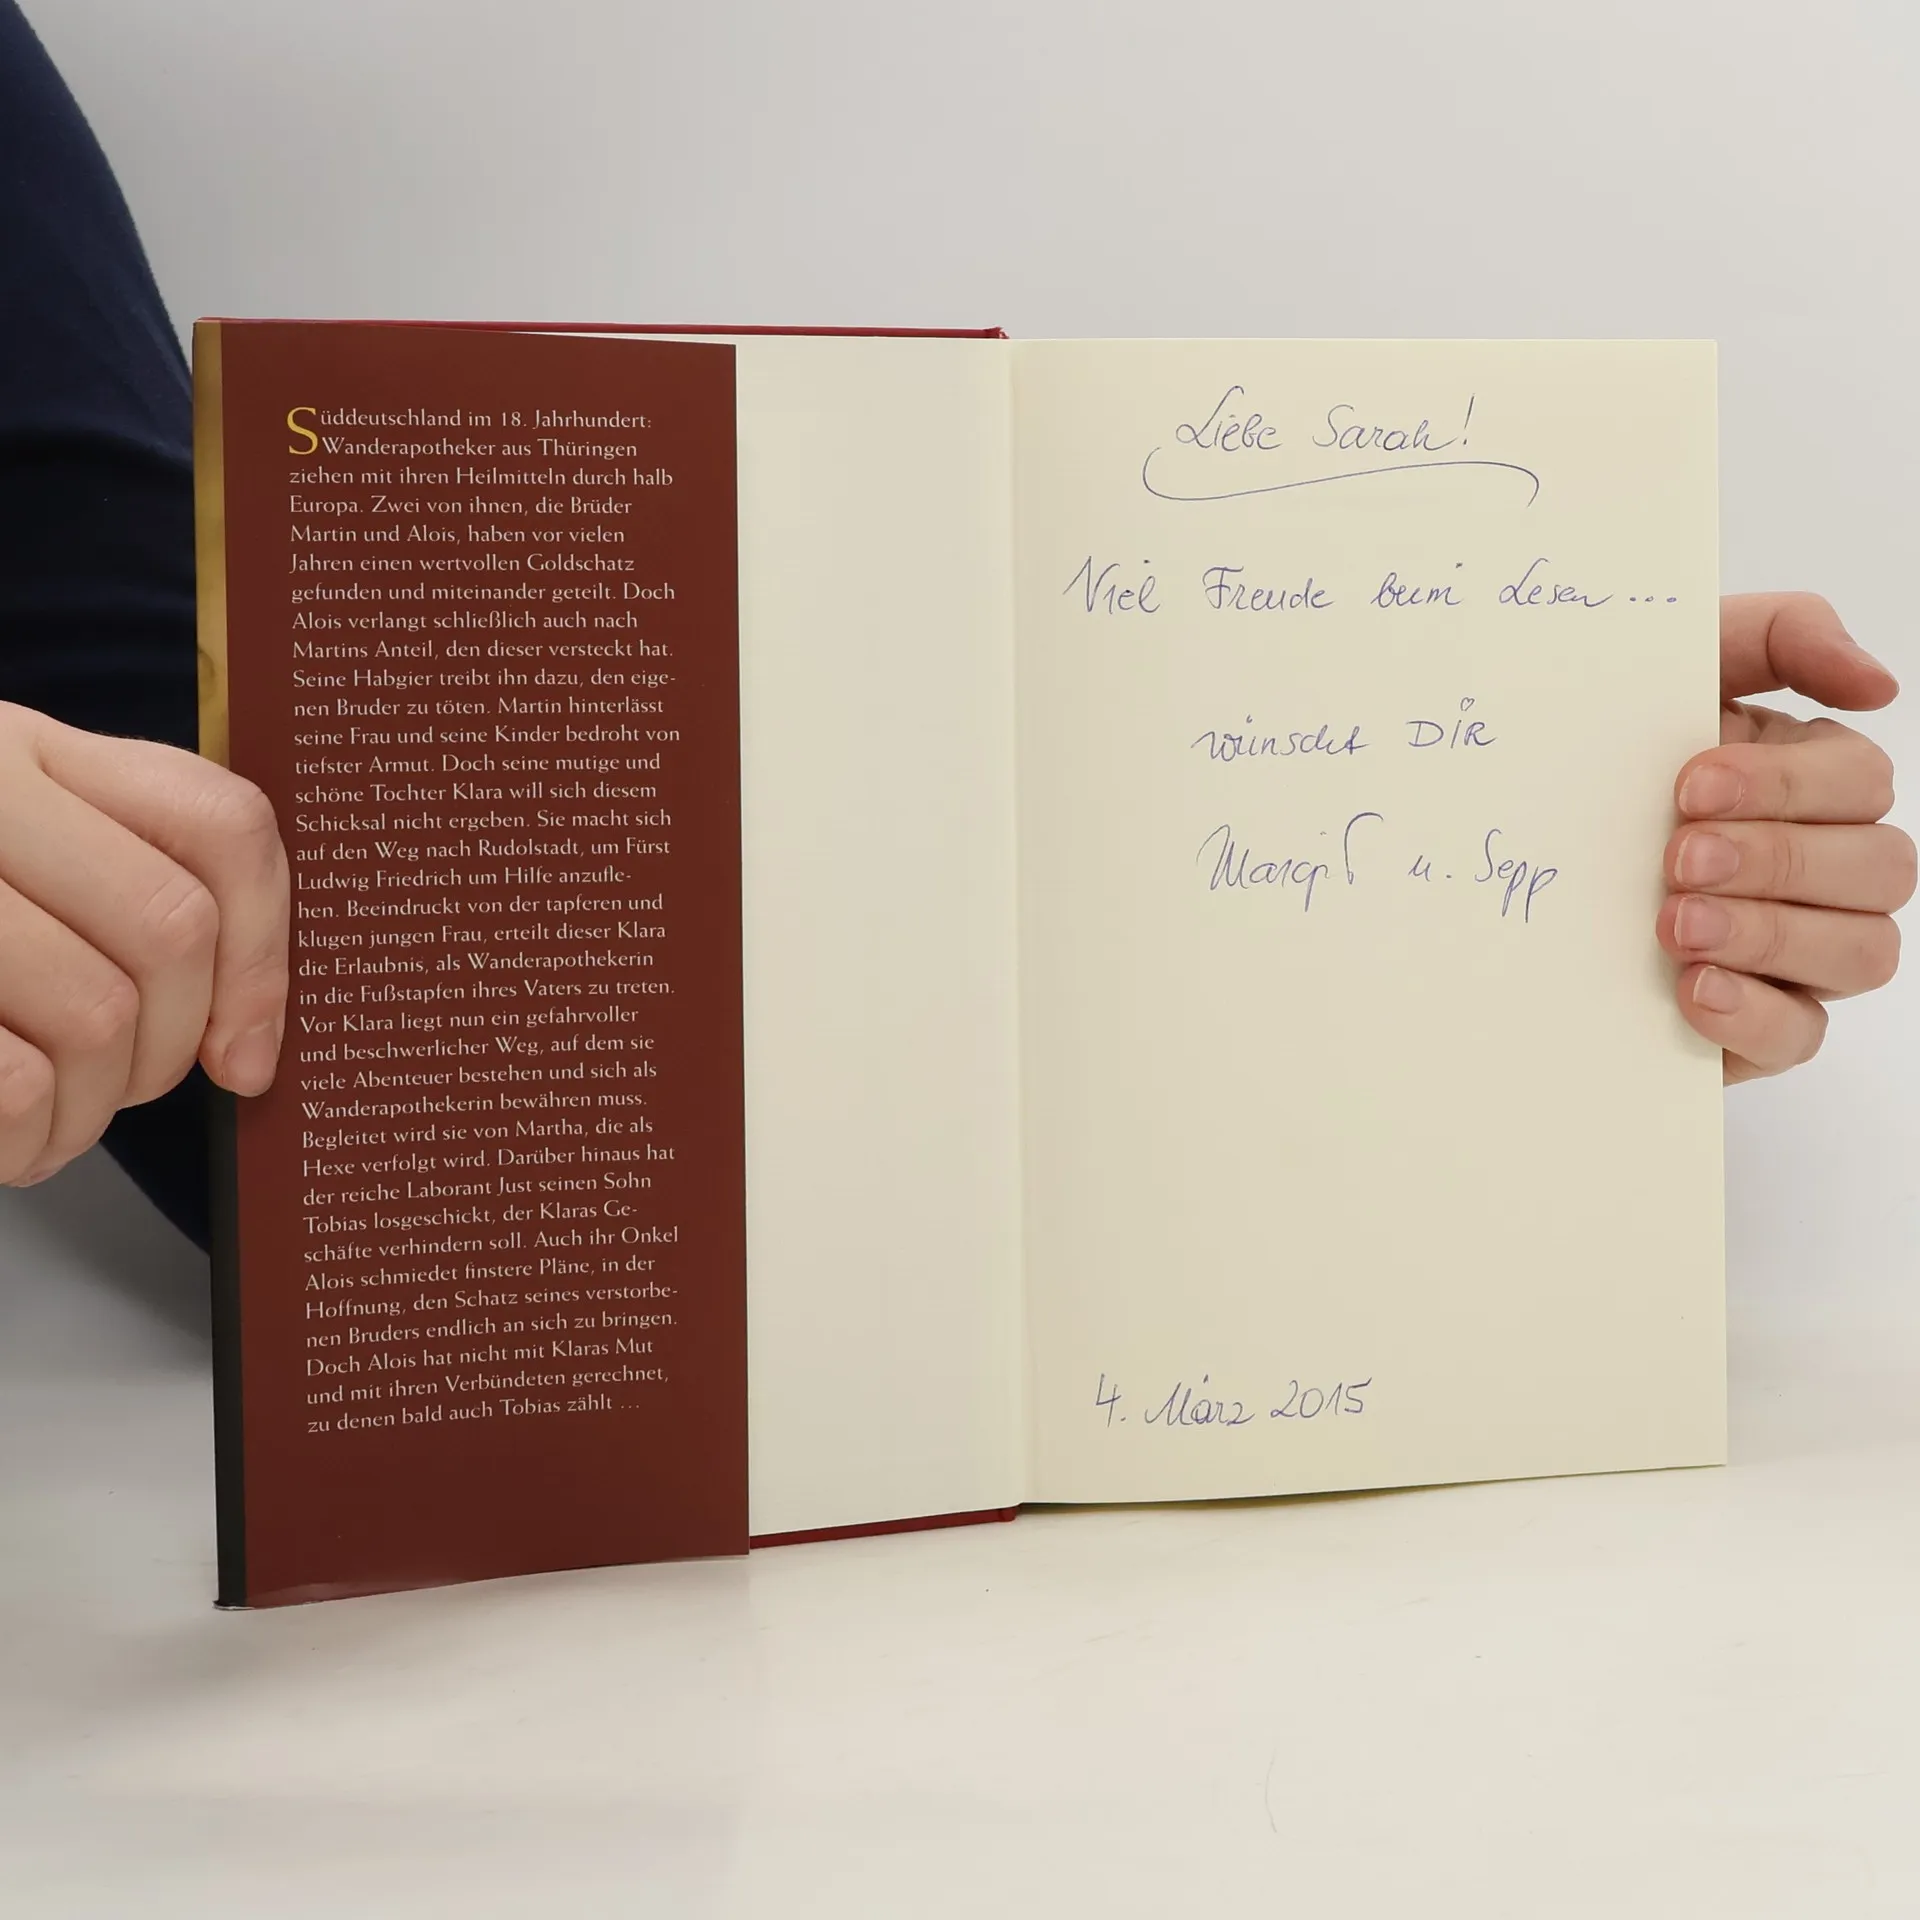 Süddeutschland im 18. Jahrhundert:
Wanderapotheker aus Thüringen
ziehen mit ihren Heilmitteln durch halb
Europa. Zwei von ihnen, die Brüder
Martin und Alois, haben vor vielen
Jahren einen wertvollen Goldschatz
gefunden und miteinander geteilt. Doch
Alois verlangt schließlich auch nach
Martins Anteil, den dieser versteckt hat.
Seine Habgier treibt ihn dazu, den eige-
nen Bruder zu töten. Martin hinterlässt
seine Frau und seine Kinder bedroht von
tiefster Armut. Doch seine mutige und
schöne Tochter Klara will sich diesem
Schicksal nicht ergeben. Sie macht sich
auf den Weg nach Rudolstadt, um Fürst
Ludwig Friedrich um Hilfe anzufle-
hen. Beeindruckt von der tapferen und
klugen jungen Frau, erteilt dieser Klara
die Erlaubnis, als Wanderapothekerin
in die Fußstapfen ihres Vaters zu treten.
Vor Klara liegt nun ein gefahrvoller
und beschwerlicher Weg, auf dem sie
viele Abenteuer bestehen und sich als
Wanderapothekerin bewähren muss.
Begleitet wird sie von Martha, die als
Hexe verfolgt wird. Darüber hinaus hat
der reiche Laborant Just seinen Sohn
Tobias losgeschickt, der Klaras Ge-
schäfte verhindern soll. Auch ihr Onkel
Alois schmiedet finstere Pläne, in der
Hoffnung, den Schatz seines verstorbe-
nen Bruders endlich an sich zu bringen.
Doch Alois hat nicht mit Klaras Mut
und mit ihren Verbündeten gerechnet,
zu denen bald auch Tobias zählt ...
Liebe Sarah!
Viel Freude beim Lesen ...
wünscht DIR
Margit u. Sepp
4. März 2015